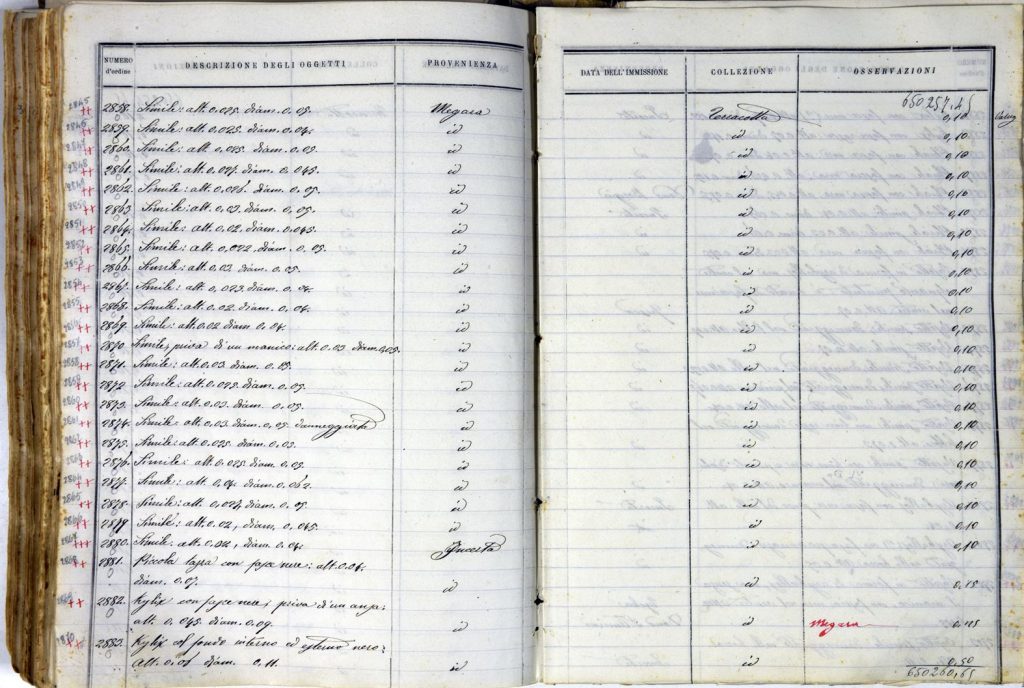 NUMERO d'ordine DESCRIZIONE DEGLI OGGETTI PROVENIENZA DATA DELL'IMMISSIONE COLLEZIONE OSSERVAZIONI
650257,45
2845 ++ 2858. Simile: alt. 0.025. diam. 0.05. Megara Terracotta 0,10
2846 ++ 2859. Simile: alt. 0.025. diam. 0.04. id id 0,10
2860. Simile: alt. 0.025. diam. 0.05. id id 0,10
2848 ++ 2861. Simile: alt. 0.027. diam. 0.045. id id 0,10
2849 ++ 2862. Simile: alt. 0.026. diam. 0.05. id id 0,10
2863. Simile: alt. 0.03. diam. 0.05. id id 0,10
2851 ++ 2864. Simile: alt. 0.02. diam. 0.045. id id 0,10
2852 ++ 2865. Simile: alt. 0.022. diam. 0.05. id id 0,10
2853 ++ 2866. Simile: alt. 0.03. diam. 0.05. id id 0,10
2854 ++ 2867. Simile: alt. 0.023. diam. 0.04. id id 0,10
2855 ++ 2868. Simile: alt. 0.02. diam. 0.04. id id 0,10
2856 ++ 2869. Simile: alt. 0.02 diam. 0.04. id id 0,10
2857 ++ 2870. Simile, priva di un manico: alt. 0.03 diam. 0.05. id id 0,10
2858 ++ 2871. Simile: alt. 0.03. diam. 0.05. id id 0,10
2859 ++ 2872. Simile: alt. 0.025. diam. 0.05. id id 0,10
2860 ++ 2873. Simile: alt. 0.03. diam. 0.05. id id 0,10
2861 ++ 2874. Simile: alt. 0.03. diam. 0.05 danneggiata id id 0,10
2862 ++ 2875. Simile: alt. 0.025. diam. 0.05. id id 0,10
++ 2876. Simile: alt. 0.025. diam. 0.05. id id 0,10
2864 ++ 2877. Simile: alt. 0.04. diam. 0.062. id id 0,10
2865 ++ 2878. Simile: alt. 0.027, diam. 0.05. id id 0,10
2866 ++ 2879 Simile: alt. 0.02, diam. 0.045. id id 0,10
2867 +++ 2880. Simile: alt. 0.02, diam. 0.04. Incerta id 0,10
2868 ++ 2881. Piccola tazza con fasce nere: alt. 0.04.
diam. 0.07. id id 0,15
2869 ++ 2882. Kylix con fasce nere; priva d'un ansa,
alt. 0.045. diam. 0.09. id id Megara 0,15
2870 ++ 2883. Kylix col fondo interno ed esterno nero:
alt. 0.06 diam. 0.11. id id 0,50
650260,65